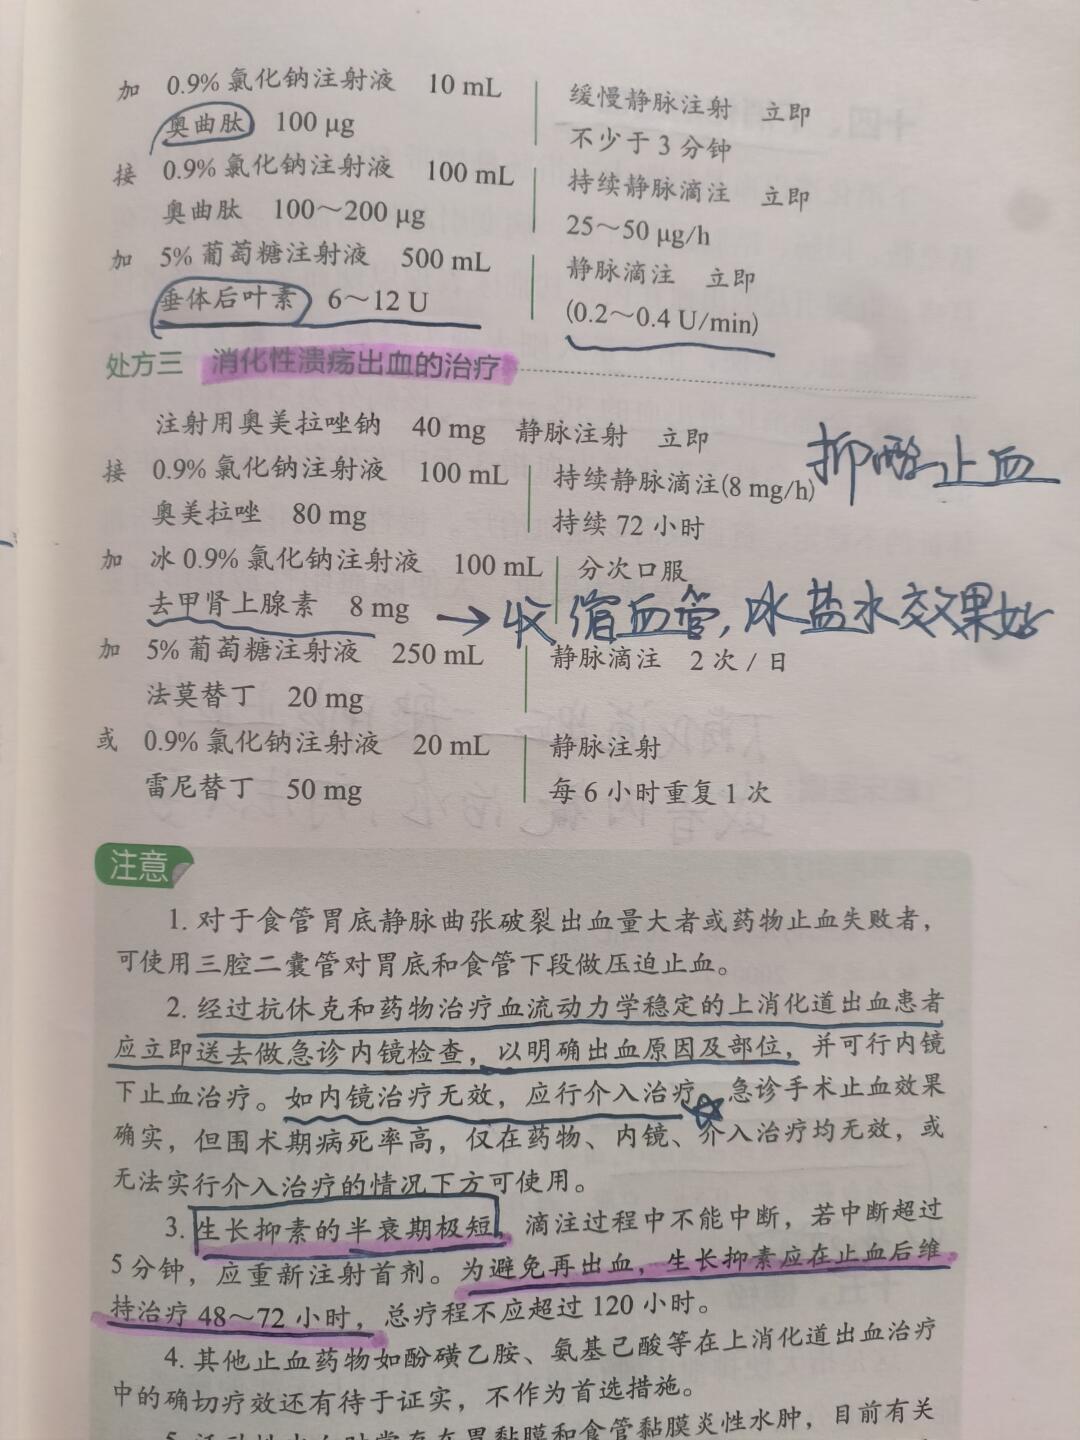 加 0.9% 氯化钠注射液 10 mL 缓慢静脉注射 立即
奥曲肽 100 μg 不少于 3 分钟
接 0.9% 氯化钠注射液 100 mL 持续静脉滴注 立即
奥曲肽 100～200 μg 25～50 μg/h
加 5% 葡萄糖注射液 500 mL 静脉滴注 立即
垂体后叶素 6～12 U (0.2～0.4 U/min)
处方三 消化性溃疡出血的治疗
注射用奥美拉唑钠 40 mg 静脉注射 立即
抑酸止血
接 0.9% 氯化钠注射液 100 mL 持续静脉滴注(8 mg/h)
奥美拉唑 80 mg 持续 72 小时
加 冰 0.9% 氯化钠注射液 100 mL 分次口服
去甲肾上腺素 8 mg → 收缩血管,冰盐水效果好
加 5% 葡萄糖注射液 250 mL 静脉滴注 2 次 / 日
法莫替丁 20 mg
或 0.9% 氯化钠注射液 20 mL 静脉注射
雷尼替丁 50 mg 每 6 小时重复 1 次
注意
1. 对于食管胃底静脉曲张破裂出血量大者或药物止血失败者，
可使用三腔二囊管对胃底和食管下段做压迫止血。
2. 经过抗休克和药物治疗血流动力学稳定的上消化道出血患者
应立即送去做急诊内镜检查，以明确出血原因及部位，并可行内镜
下止血治疗。如内镜治疗无效，应行介入治疗 急诊手术止血效果
确实，但围术期病死率高，仅在药物、内镜、介入治疗均无效，或
无法实行介入治疗的情况下方可使用。
3. 生长抑素的半衰期极短，滴注过程中不能中断，若中断超过
5 分钟，应重新注射首剂。为避免再出血，生长抑素应在止血后维
持治疗 48～72 小时，总疗程不应超过 120 小时。
4. 其他止血药物如酚磺乙胺、氨基己酸等在上消化道出血治疗
中的确切疗效还有待于证实，不作为首选措施。
胃黏膜和食管黏膜炎性水肿，目前有关